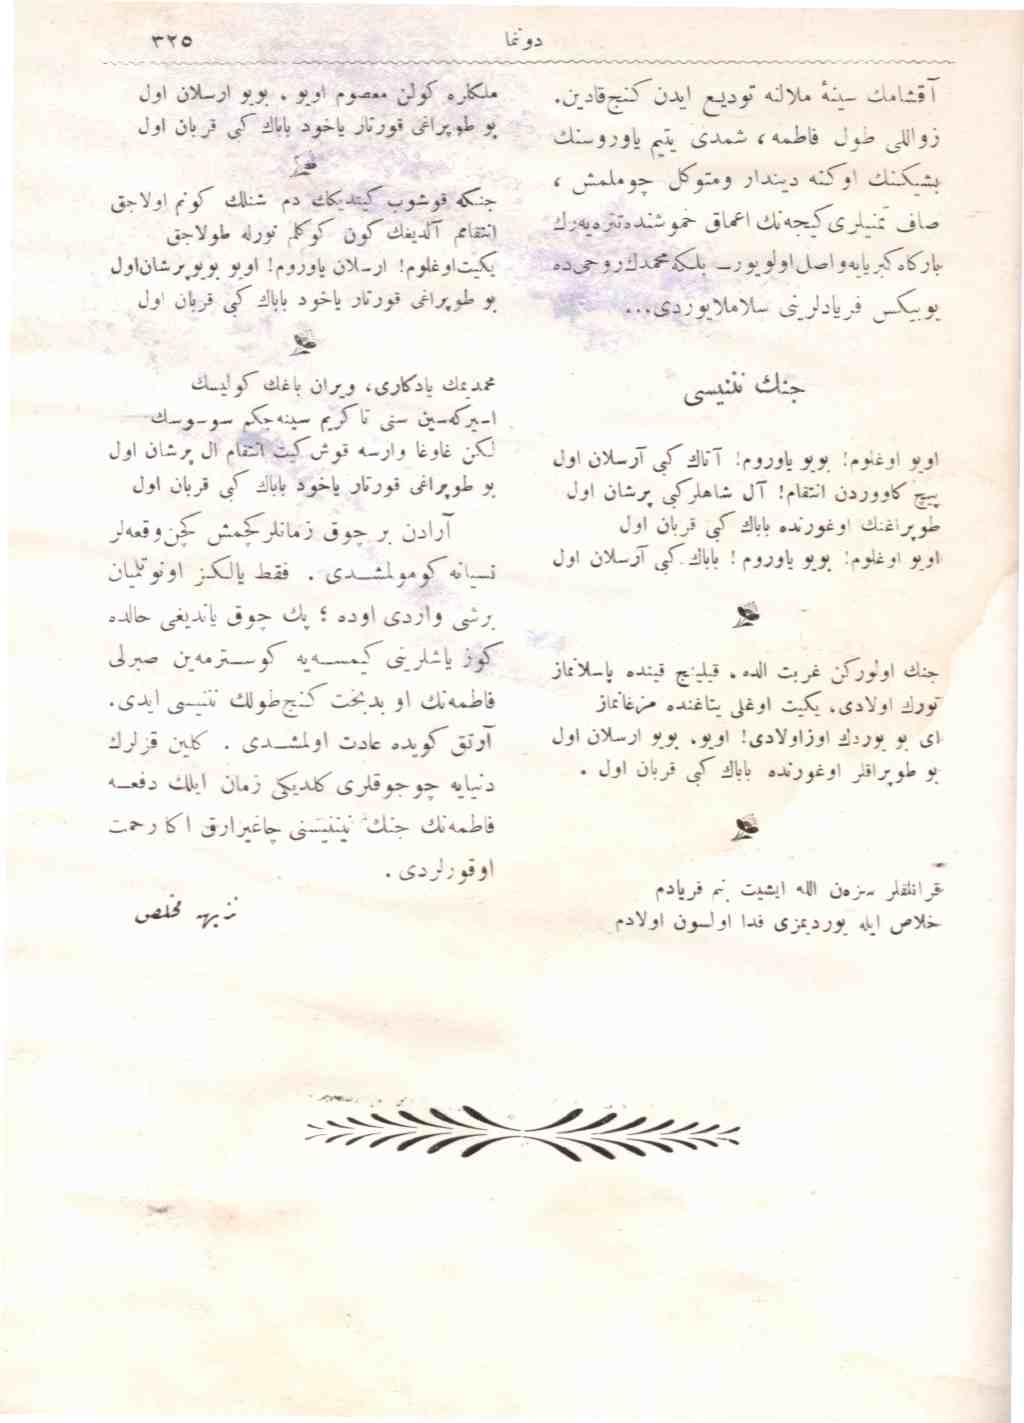 دوننما
٣٢٥
آقشامك سینهٔ ملالنه تودیع ایدن كنج قادین.
زواللی طول فاطمه، شمدی یتیم یاوروسنك
بشیكنك اوكنه دیندار ومتوكل چوملمش،
صاف تمنیلری كیجه‌نك اعماق خموشنده تتره‌یه‌رك
باركاه كبریایه واصل اولویور ــ بلكه محمدك روحی ده
بو بیكس فریادلرینی سلاملایوردی...
جنك ننیسی
اویو اوغلوم! بویو یاوروم! آتاك كبی آرسلان اول
پیچ كاووردن انتقام! آل شاهلر كبی پرشان اول
طوپراغنك اوغورنده باباك كبی قربان اول
اویو اوغلوم! بویو یاوروم! باباك كبی آرسلان اول
جنك اولوركن غربت الده، قیلینج قینده پاسلانماز
تورك اولادی، یكیت اوغلی یتاغنده مزغانماز
ای بو یوردك اوز اولادی! اویو، بویو ارسلان اول
بو طوپراقلر اوغورنده باباك كبی قربان اول.
قرانلقلر سزه‌ن الله ایشیت بنم فریادم
خلاص ایله یوردیمزی فدا اولسون اولادم
ملكلره كولن معصوم اویو، بویو ارسلان اول
بو طوپراغی قورتار یاخود باباك كبی قربان اول
جنكه قوشوب كیتدیكك دم شنلك كونم اولاجق
انتقامم آلدیغك كون كوكلم نورله طولاجق
یكیت اوغلوم! ارسلان یاوروم! اویو بویو پرشان اول
بو طوپراغی قورتار یاخود باباك كبی قربان اول
محمدیمك یادكاری، ویران باغك كولیسك
اسیركه‌سین سنی تاكریم سینه‌جكم سوسوسك
لكن غاوغا وارسه قوش كیت انتقام ال پرشان اول
بو طوپراغی قورتار یاخود باباك كبی قربان اول
آرادن بر چوق زمانلر كچمش كچن وقعه‌لر
نسیانه كومولمشدی. فقط یالكز اونوتلمیان
برشی واردی اوده؛ پك چوق یاندیغی حالده
كوز یاشلرینی كیمسه‌یه كوسترمه‌ین صبرلی
فاطمه‌نك او بدبخت كنج طولك ننیسی ایدی.
آرتق كویده عادت اولمشدی. كلین قزلرك
دنیایه چوجوقلری كلدیكی زمان ایلك دفعه
فاطمه‌نك جنك نینیسنی چاغیرارق اكا رحمت
اوقورلردی.
نزیهه مخلص